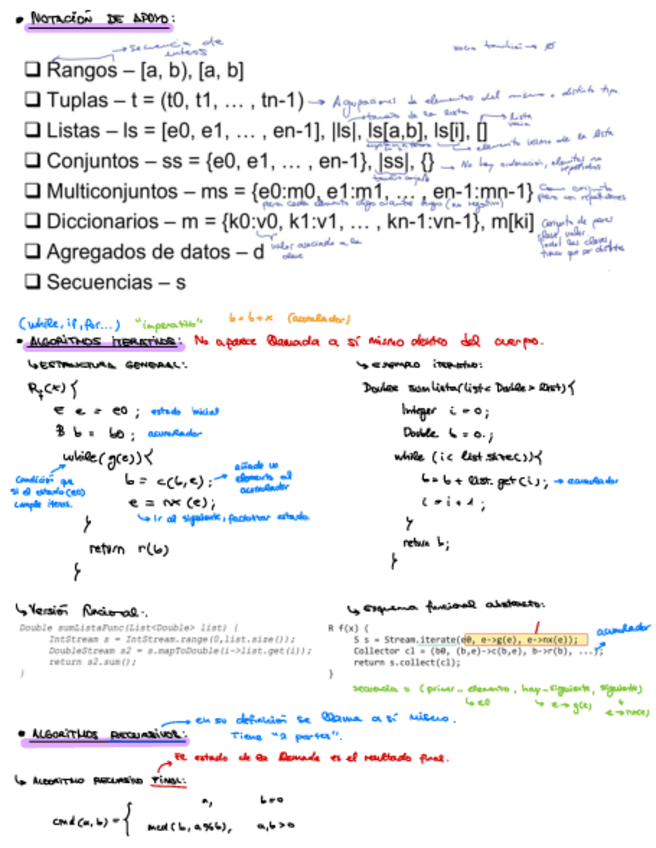 • NOTACIÓN DE APOYO:
→ secuencia de enteros
vacio también → ∅
❑ Rangos – [a, b), [a, b]
❑ Tuplas – t = (t0, t1, … , tn-1) → Agrupaciones de elementos del mismo o distinto tipo
tamaño de la lista
→ Lista vacía
❑ Listas – ls = [e0, e1, … , en-1], |ls|, ls[a,b], ls[i], []
elemento iésimo de la lista
❑ Conjuntos – ss = {e0, e1, … , en-1}, |ss|, {} → No hay ordenación, elementos no repetidos
❑ Multiconjuntos – ms = {e0:m0, e1:m1, … , en-1:mn-1} Como conjunto pero con repeticiones
para cada elemento digo cuantos hay (no negativo)
❑ Diccionarios – m = {k0:v0, k1:v1, … , kn-1:vn-1}, m[ki] Conjunto de pares clave, valor
todas las claves tienen que ser distintas
valor asociado a la clave
❑ Agregados de datos – d
❑ Secuencias – s
(while, if, for...) "imperativo" b = b + x (acumulador)
• ALGORITMOS ITERATIVOS: No aparece llamada a sí mismo dentro del cuerpo.
↳ ESTRUCTURA GENERAL:
R f(x) {
E e = e0; estado inicial
B b = b0; acumulador
while(g(e)){
Condición que si el estado (e0) cumple itera.
b = c(b,e); → añade un elemento al acumulador
e = nx(e);
↳ Ir al siguiente, factorizar estado.
}
return r(b)
}
↳ EJEMPLO ITERATIVO:
Double sumLista(List<Double> list){
Integer i = 0;
Double b = 0.;
while (i < list.size()){
b = b + list.get(i); → acumulador
i = i + 1;
}
return b;
}
↳ Versión funcional.
Double sumListaFunc(List<Double> list) {
IntStream s = IntStream.range(0,list.size());
DoubleStream s2 = s.mapToDouble(i->list.get(i));
return s2.sum();
}
↳ Esquema funcional abstracto:
R f(x) {
S s = Stream.iterate(e0, e->g(e), e->nx(e)); acumulador
Collector cl = (b0, (b,e)->c(b,e), b->r(b), ...);
return s.collect(cl);
}
secuencia = (primer_elemento, hay_siguiente, siguiente)
↳ e0 ↳ e → g(e) e → nx(e)
• ALGORITMOS RECURSIVOS: → en su definición se llama a sí mismo.
Tiene "2 partes".
→ El estado de la llamada es el resultado final.
↳ ALGORITMO RECURSIVO FINAL:
a, b=0
cmd(a,b) = {
mcd(b, a%b), a,b>0